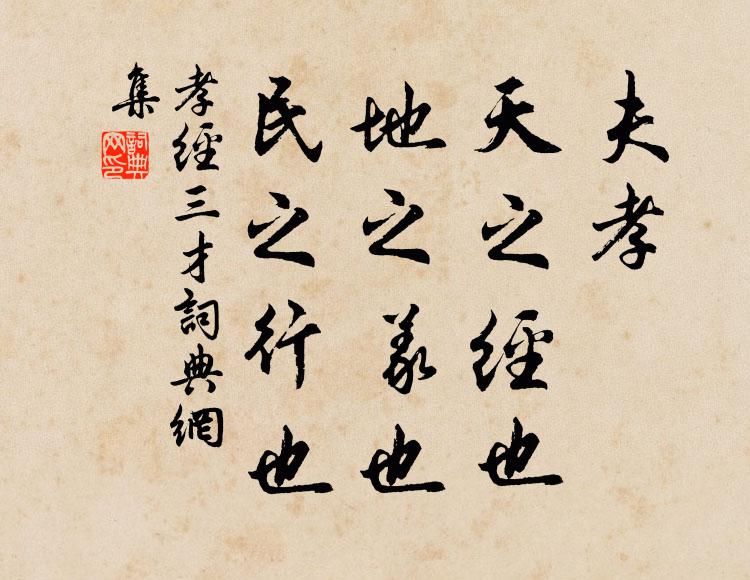 夫孝
天之經也
地之義也
民之行也
孝經三才詞典網
集
詞典网印